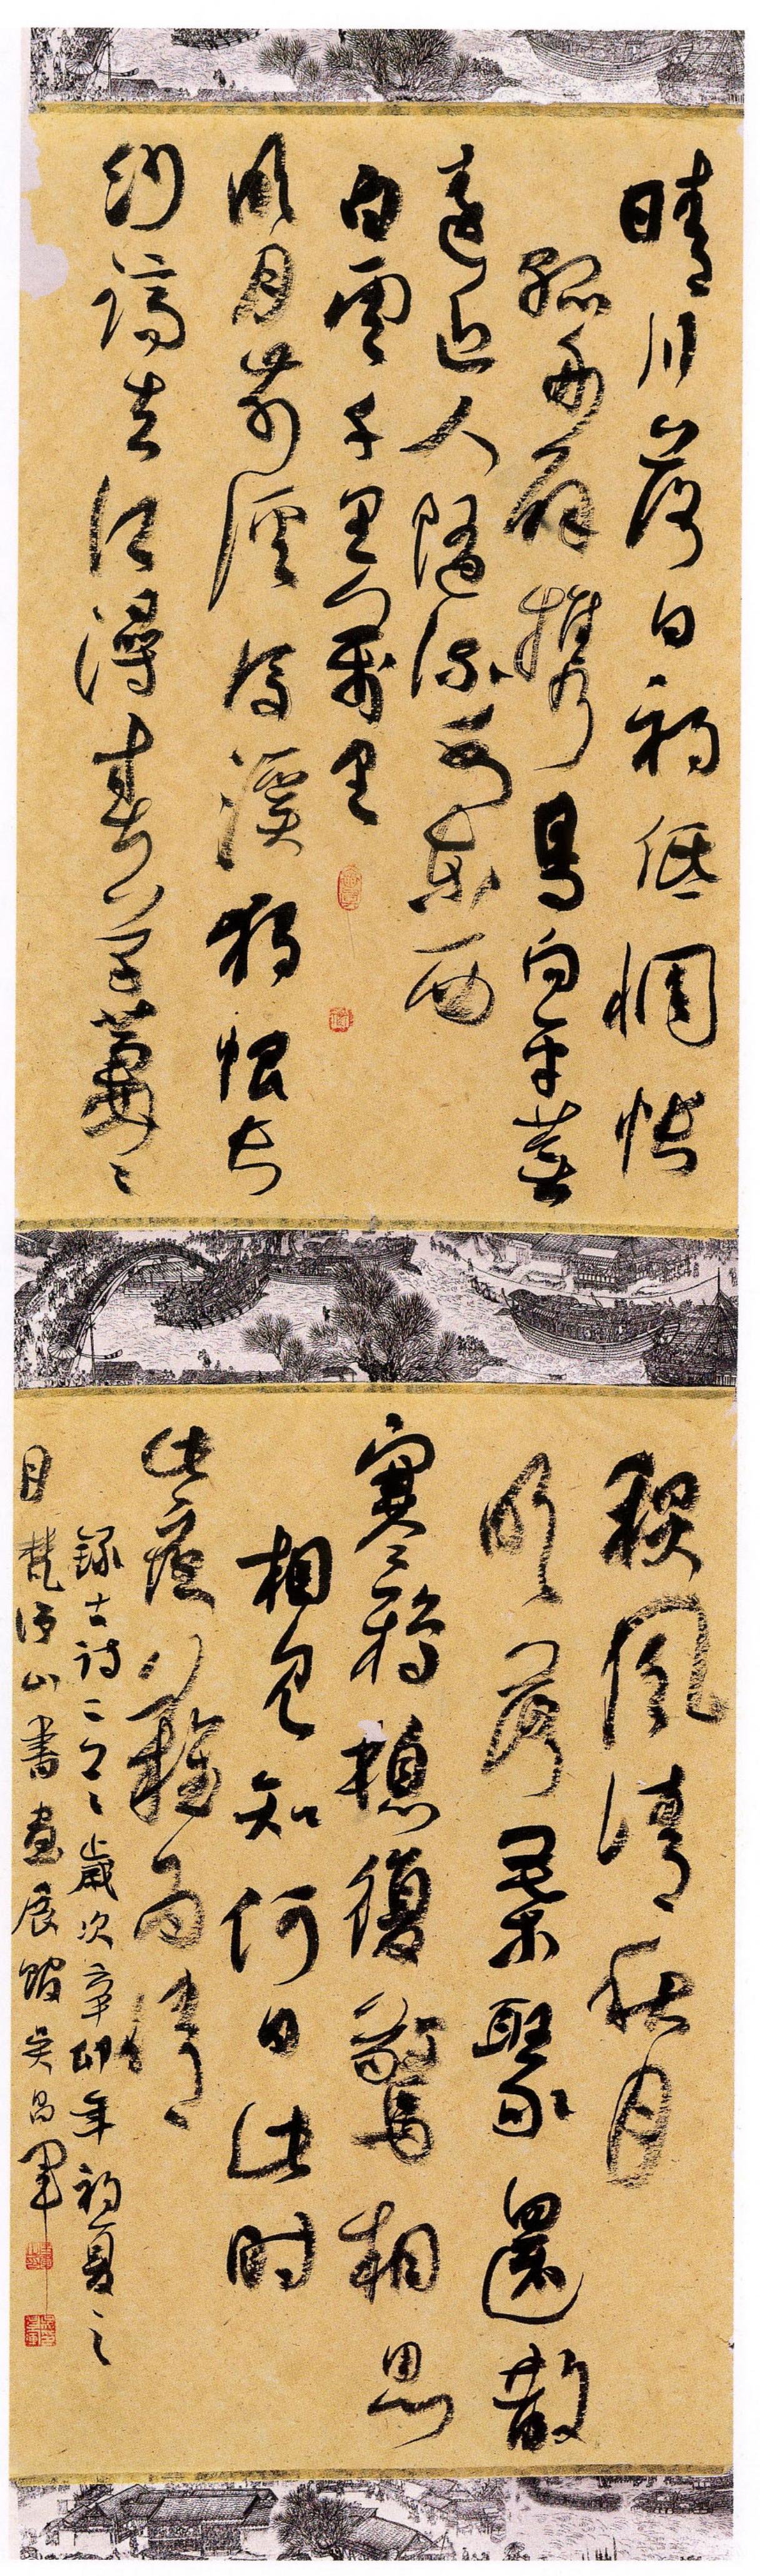 晴川落日初低惆怅
孤舟解携鳥向平蕪
遠近人隨流水東西
白雲千里萬里
明月前溪後溪獨恨长
沙謫去江潭春草萋〻
秋風清秋月
明落葉聚還散
寒鴉棲復驚相思
相見知何日此时
此夜難为情
録古詩二首歲次辛卯年初夏之
月梵净山書畫展館吴昌军